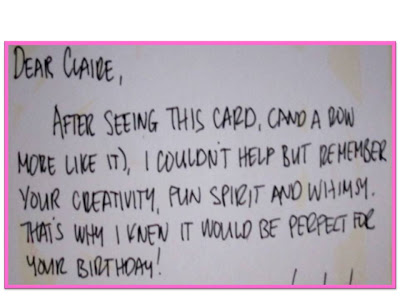 DEAR CLAIRE,
AFTER SEEING THIS CARD, (AND A ROW
MORE LIKE IT), I COULDN'T HELP BUT REMEMBER
YOUR CREATIVITY, FUN SPIRIT AND WHIMSY.
THAT'S WHY I KNEW IT WOULD BE PERFECT FOR
YOUR BIRTHDAY!